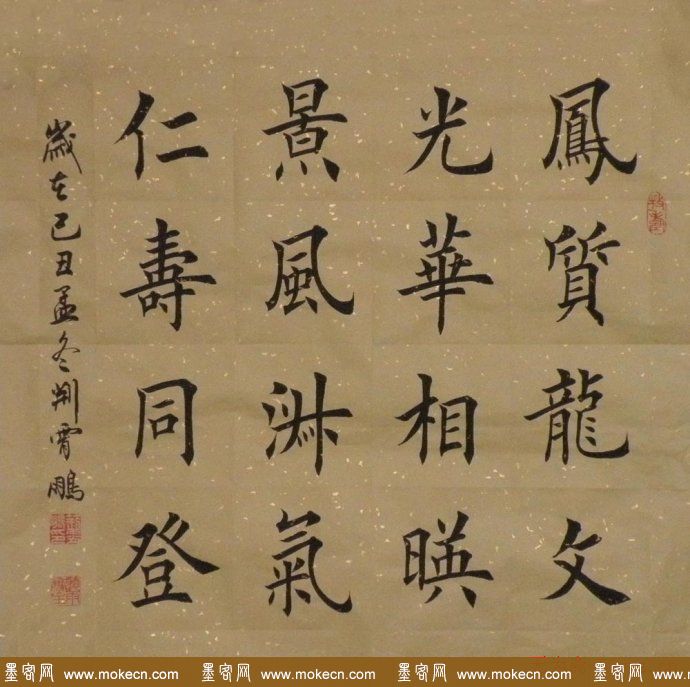 鳳質龍文
光華相暎
景風淑氣
仁壽同登
歲在己丑孟冬荆霄鵬
墨客网 www.mokecn.com 墨客网 www.mokecn.com 墨客网 www.mokecn.com 墨客网 www.mokecn.